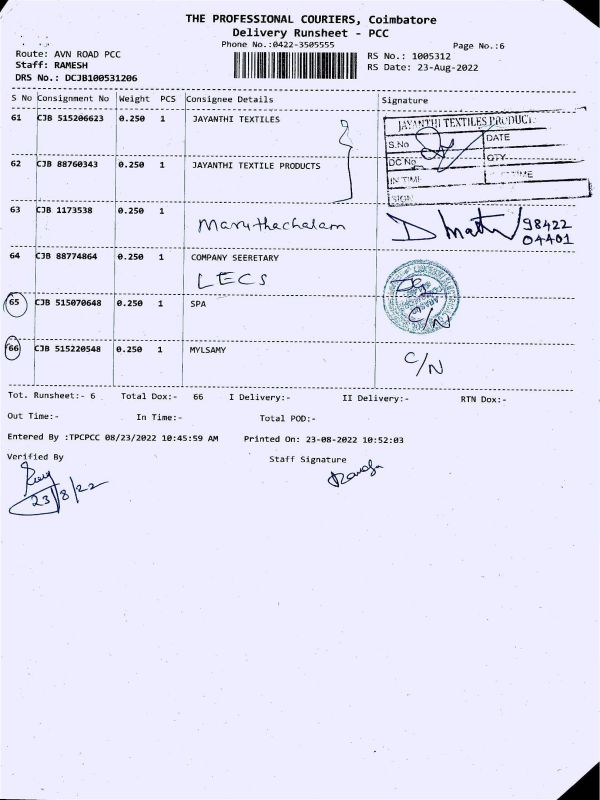 THE PROFESSIONAL COURIERS, Coimbatore
Delivery Runsheet - PCC
Phone No.:0422-3505555 Page No.:6
Route: AVN ROAD PCC RS No.: 1005312
Staff: RAMESH RS Date: 23-Aug-2022
DRS No.: DCJB100531206
S No Consignment No Weight PCS Consignee Details Signature
61 CJB 515206623 0.250 1 JAYANTHI TEXTILES
JAYANTHI TEXTILES PRODUCT
S.No DATE
DC No QTY
IN TIME TIME
SIGN
62 CJB 88760343 0.250 1 JAYANTHI TEXTILE PRODUCTS
63 CJB 1173538 0.250 1
Maruthachalam 98422
04401
64 CJB 88774864 0.250 1 COMPANY SEERETARY
LECS
65 CJB 515070648 0.250 1 SPA C/N
66 CJB 515220548 0.250 1 MYLSAMY C/N
Tot. Runsheet:- 6 Total Dox:- 66 I Delivery:- II Delivery:- RTN Dox:-
Out Time:- In Time:- Total POD:-
Entered By :TPCPCC 08/23/2022 10:45:59 AM Printed On: 23-08-2022 10:52:03
Verified By Staff Signature
23/8/22